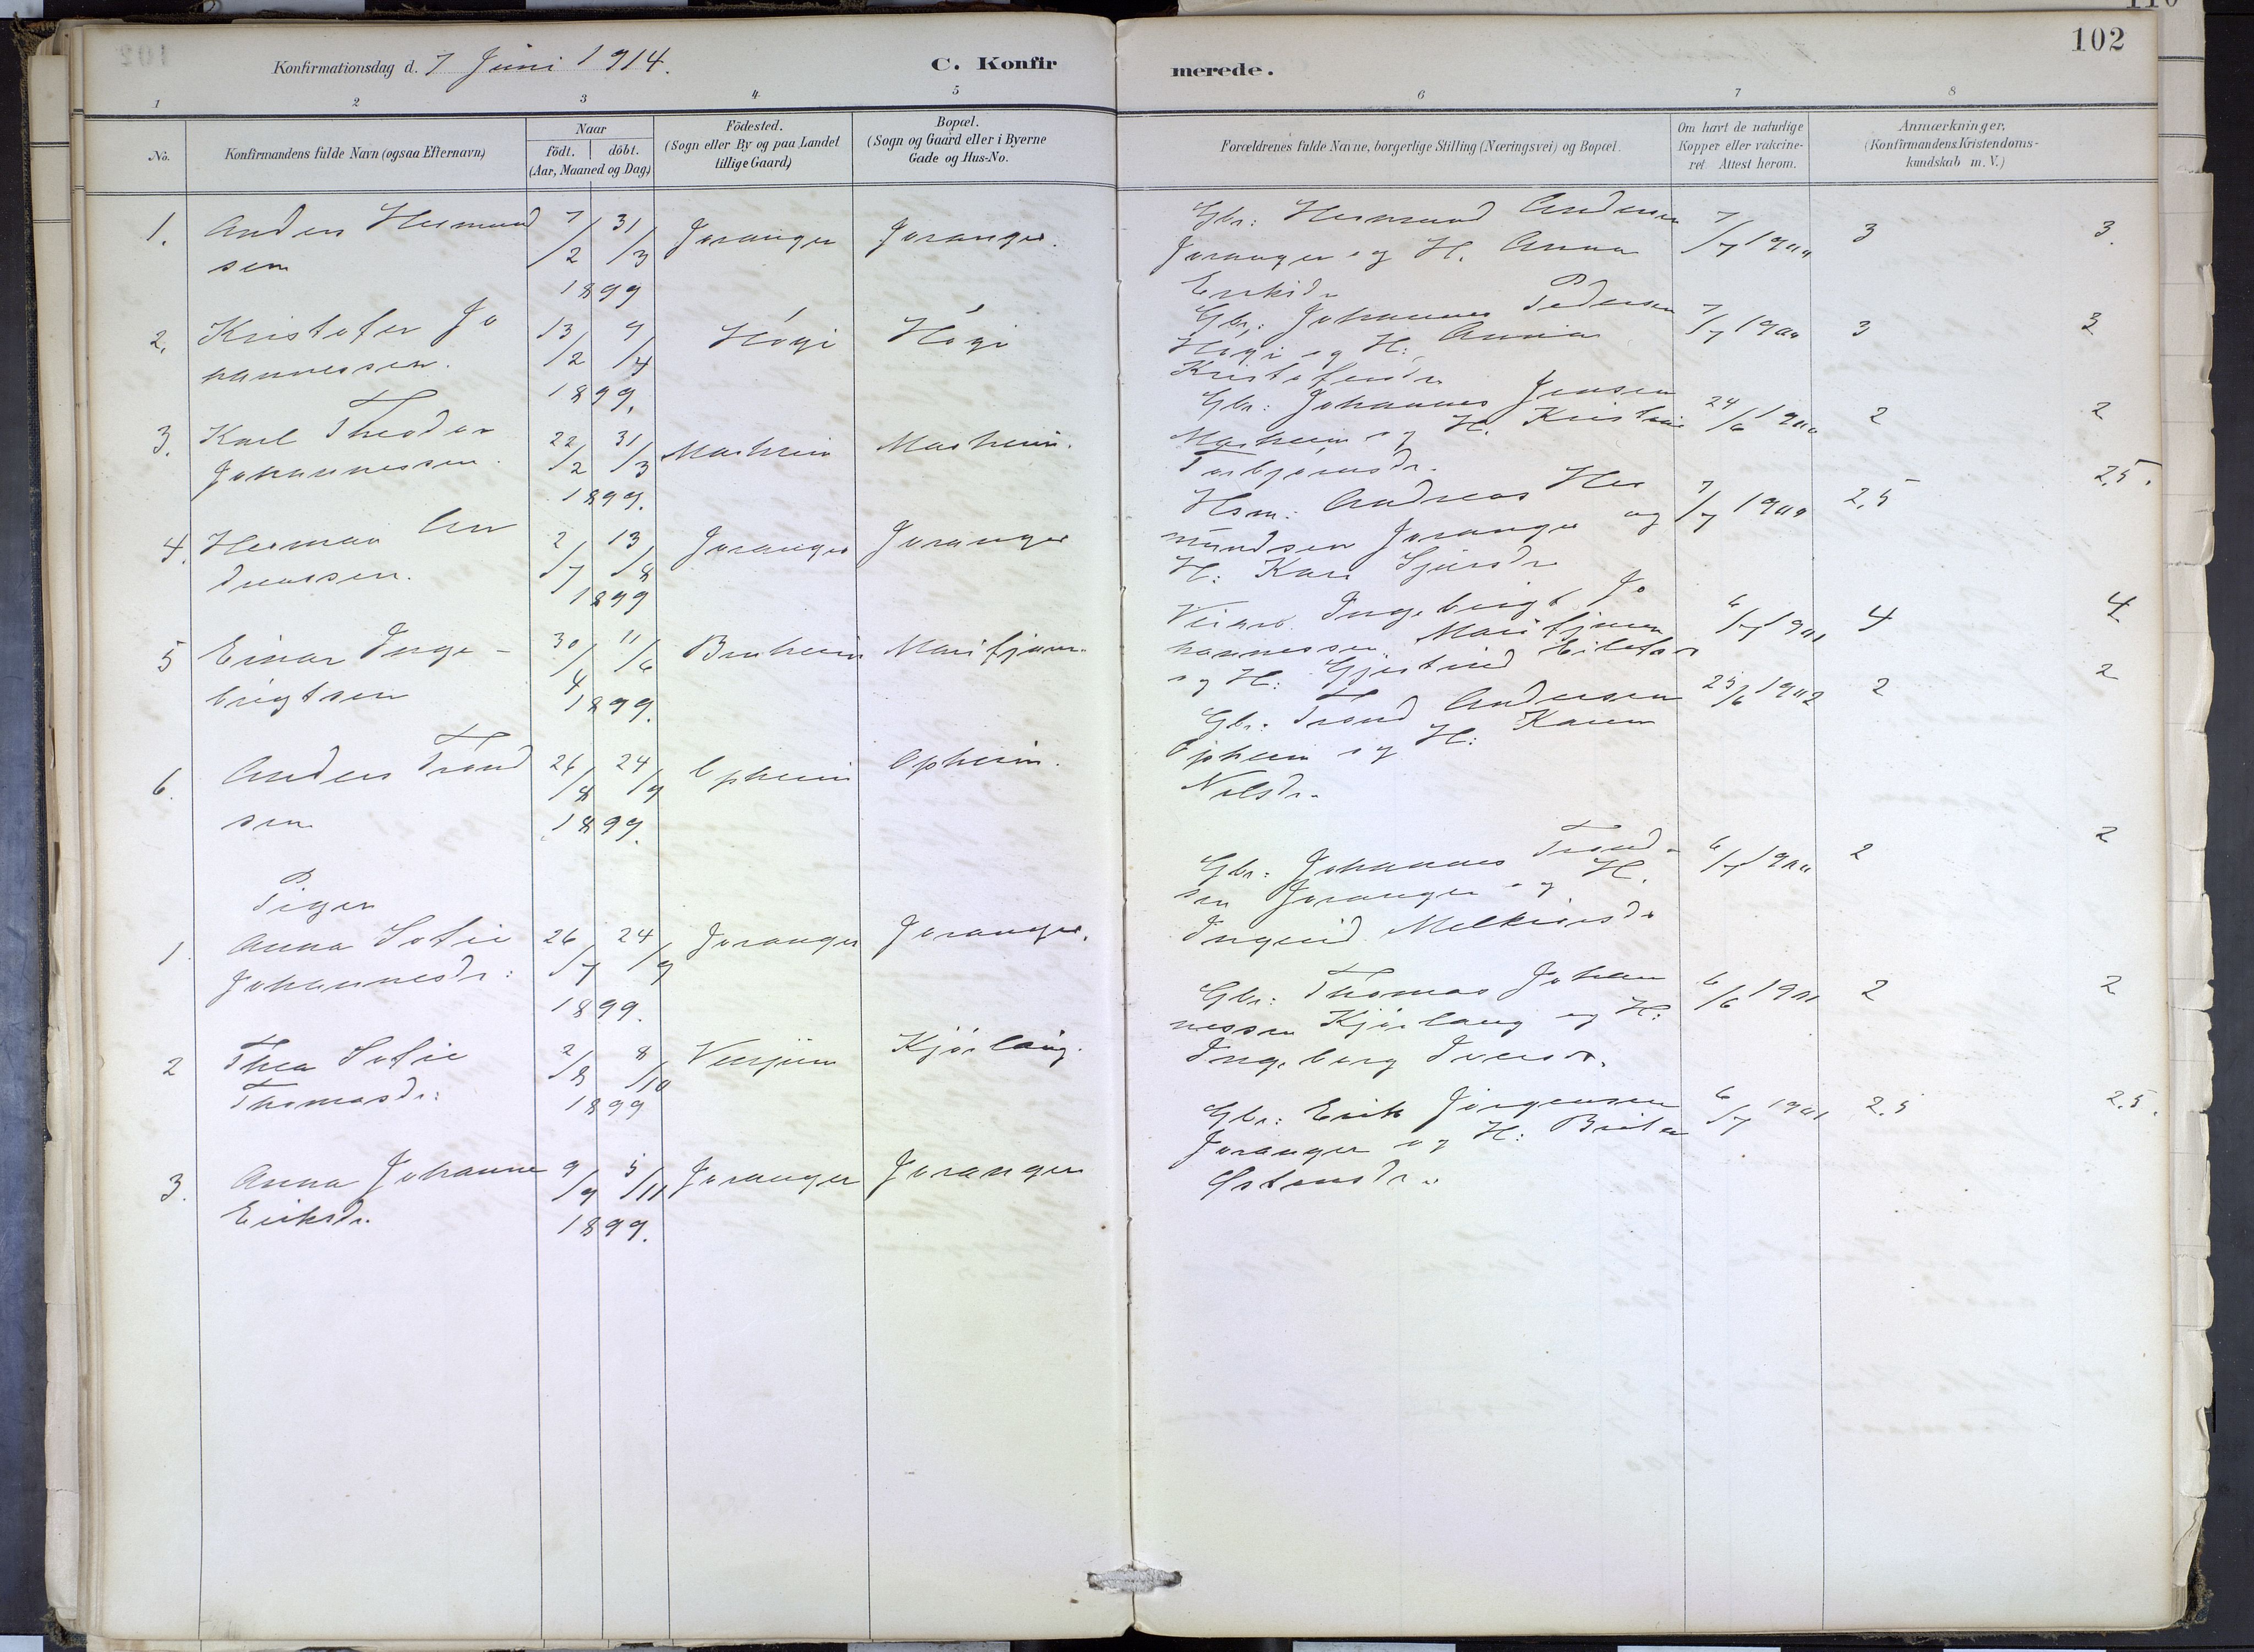 102
Konfirmationsdag d. 7 Juni 1914.
C. Konfirmerede.
1 2 3 4 5 6 7 8
No.
Konfirmandens fulde Navn (ogsaa Efternavn)
Naar
födt. döbt.
(Aar, Maaned og Dag)
Födested.
(Sogn eller By og paa Landet
tillige Gaard)
Bopæl.
(Sogn og Gaard eller i Byerne
Gade og Hus-No.
Forældrenes fulde Navne, borgerlige Stilling (Næringsvei) og Bopæl.
Om havt de naturlige
Kopper eller vakcine-
ret. Attest herom.
Anmærkninger,
(Konfirmandens Kristendoms-
kundskab m. V.)
1. Anders Hermund
sen
7/2 31/3
1899
Joranger Joranger.
Gbr: Hermund Andersen
Joranger og H. Anna
Eriksdr
7/7 1900 3 3.
2. Kristofer Jo
hannessen.
13/2 9/4
1899.
Högi Högi
Gbr: Johannes Pedersen
Högi og H: Anna
Kristofersdr
7/7 1900 3 3
3. Karl Theodor
Johannessen.
22/2 31/3
1899.
Marheim Marheim.
Gbr: Johannes Jensen
Marheim og H. Kristine
Torbjörnsdr.
24/6 1900 2 2
4. Herman An
dreassen.
2/7 13/8
1899
Joranger Joranger
Hsm: Andreas Her
mundsen Joranger og
H: Kari Sjursdr
7/7 1900 2,5 2,5.
5 Einar Inge-
brigtsen
30/4 11/6
1899.
Bruheim Marifjæren.
Ingebrigt Jo
hannessen Marifjæren
og H: Gjertrud
6/7 1901 4 4
6. Anders Trond
sen
26/8 24/9
1899.
Opheim Opheim.
Gbr: Trond Andersen
Opheim og H: Karen
Nilsdr.
25/6 1902 2 2
Piger
1. Anna Sofie
Johannesdr:
26/7 24/9
1899.
Joranger Joranger.
Gbr: Johannes Trond-
sen Joranger og H.
Ingrid Melkiorsdr
6/7 1900 2 2
2 Thea Sofie
Thomasdr:
2/8 8/10
1899
Kjörlaug.
Gbr: Thomas Johan
nessen Kjörlaug og H:
Ingeborg Iversdr.
6/6 1901 2 2
3. Anna Johanne
Eriksdr.
9/9 5/11
1899.
Joranger Joranger
Gbr: Erik Jörgensen
Joranger og H: Brita
Ostensdr.
6/7 1901 2,5 2,5.